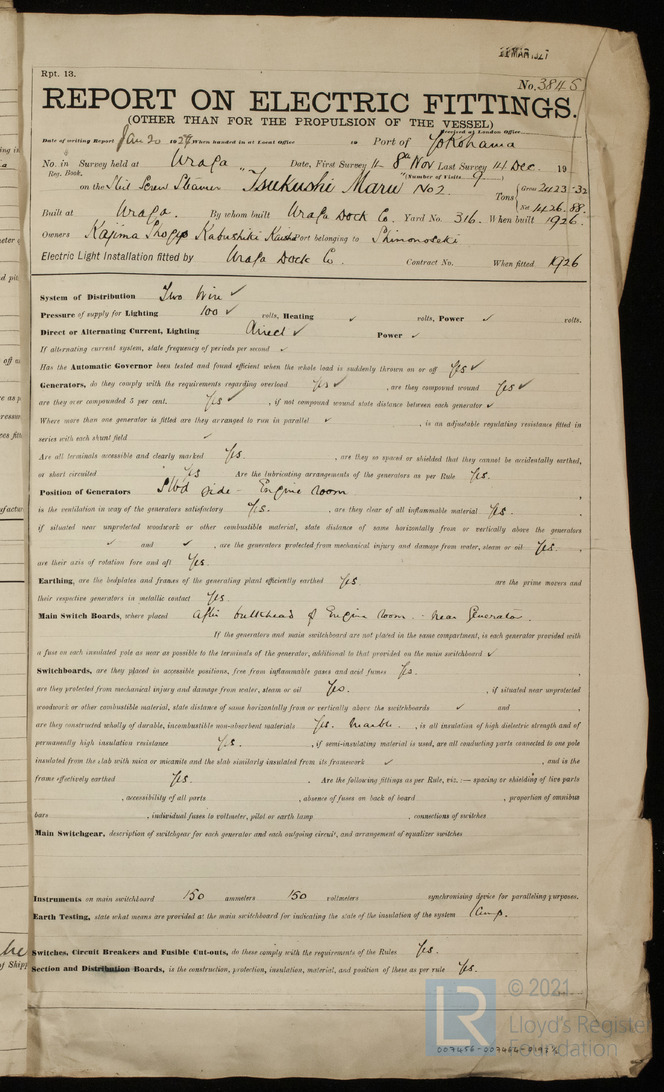 22 MAR 1927
Rpt. 13.
No. 3845
REPORT ON ELECTRIC FITTINGS.
(OTHER THAN FOR THE PROPULSION OF THE VESSEL)
Received at London Office
Date of writing Report Jan 20 1927 When handed in at Local Office 19 Port of Yokohama
No. in Survey held at Uraga Date, First Survey 11-8th Nov Last Survey 14 Dec. 19
Reg. Book. (Number of Visits 9
on the Stil Screw Steamer "Tsukushi Maru No 2 Tons { Gross 2423.32
Net 1426.88
Built at Uraga. By whom built Uraga Dock Co. Yard No. 316. When built 1926.
Owners Kajima Kabushiki Kaisha Port belonging to Shimonoseki
Electric Light Installation fitted by Uraga Dock Co. Contract No. When fitted 1926
System of Distribution Two Wire ✓
Pressure of supply for Lighting 100 ✓ volts, Heating ✓ volts, Power ✓ volts.
Direct or Alternating Current, Lighting Direct ✓ Power ✓
If alternating current system, state frequency of periods per second ✓
Has the Automatic Governor been tested and found efficient when the whole load is suddenly thrown on or off Yes ✓
Generators, do they comply with the requirements regarding overload Yes ✓ , are they compound wound Yes ✓
are they over compounded 5 per cent. Yes ✓ , if not compound wound state distance between each generator ✓
Where more than one generator is fitted are they arranged to run in parallel ✓ , is an adjustable regulating resistance fitted in
series with each shunt field ✓
Are all terminals accessible and clearly marked Yes. , are they so spaced or shielded that they cannot be accidentally earthed,
or short circuited Yes Are the lubricating arrangements of the generators as per Rule Yes.
Position of Generators Stbd side - Engine room
is the ventilation in way of the generators satisfactory Yes. , are they clear of all inflammable material Yes.
if situated near unprotected woodwork or other combustible material, state distance of same horizontally from or vertically above the generators
✓ and ✓ , are the generators protected from mechanical injury and damage from water, steam or oil Yes.
are their axis of rotation fore and aft Yes.
Earthing, are the bedplates and frames of the generating plant efficiently earthed Yes. are the prime movers and
their respective generators in metallic contact Yes.
Main Switch Boards, where placed After bulkhead of Engine Room - near Generator.
If the generators and main switchboard are not placed in the same compartment, is each generator provided with
a fuse on each insulated pole as near as possible to the terminals of the generator, additional to that provided on the main switchboard ✓
Switchboards, are they placed in accessible positions, free from inflammable gases and acid fumes Yes.
are they protected from mechanical injury and damage from water, steam or oil Yes. , if situated near unprotected
woodwork or other combustible material, state distance of same horizontally from or vertically above the switchboards ✓ and
are they constructed wholly of durable, incombustible non-absorbent materials Yes. Marble. , is all insulation of high dielectric strength and of
permanently high insulation resistance Yes. , if semi-insulating material is used, are all conducting parts connected to one pole
insulated from the slab with mica or micanite and the slab similarly insulated from its framework ✓ , and is the
frame effectively earthed Yes. . Are the following fittings as per Rule, viz.:— spacing or shielding of live parts
, accessibility of all parts , absence of fuses on back of board , proportion of omnibus
bars , individual fuses to voltmeter, pilot or earth lamp , connections of switches
Main Switchgear, description of switchgear for each generator and each outgoing circuit, and arrangement of equalizer switches
Instruments on main switchboard 150 ammeters 150 voltmeters synchronising device for paralleling purposes.
Earth Testing, state what means are provided at the main switchboard for indicating the state of the insulation of the system Lamp.
Switches, Circuit Breakers and Fusible Cut-outs, do these comply with the requirements of the Rules Yes.
Section and Distribution Boards, is the construction, protection, insulation, material, and position of these as per rule Yes.
© 2021
LR Lloyd's Register
Foundation